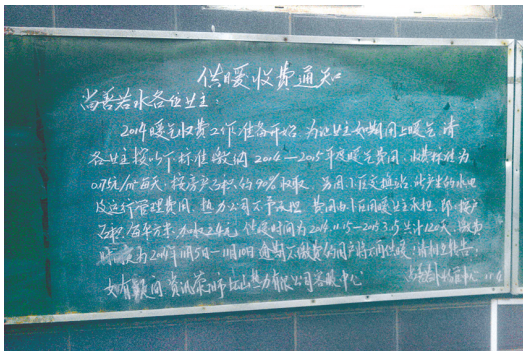 供暖收费通知
尚善若水各位业主：
2014暖气收费工作准备开始 为让业主如期用上暖气 请
各业主按以下标准缴纳2014—2015年度暖气费用，收费标准为
每天，按房产面积的90%收取，另用
及运行管理费用，热力公司不予承担 费用由小区用暖业主承担，即：按户
面积 每平方米 加收2.4元，供暖时间为2014.11.15—2015.3.15 共计120天，缴费
时 为2014年11月5日—11月10日 逾期不缴费的用户将不再供暖，请相互转告，
如有疑问 资讯荣 市 山热力有限公司客服中心 11.4